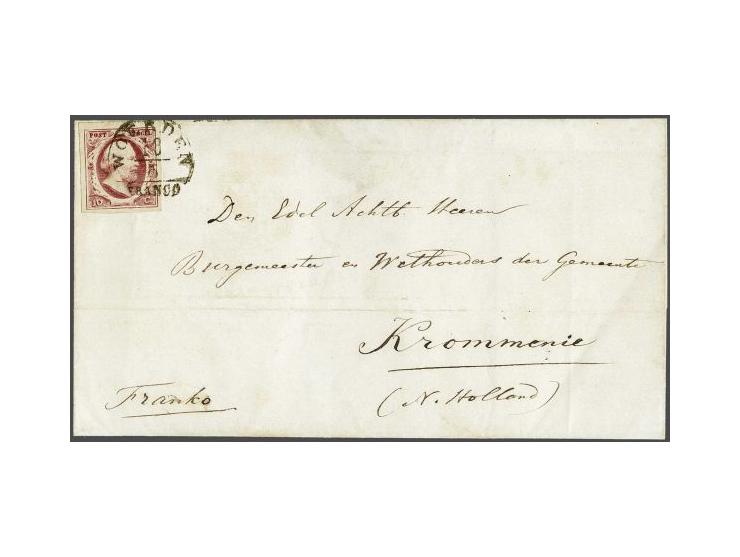 POST ZEGEL
WOERDEN
FRANCO
10 C.
Den Edel Achtb. Heeren
Burgemeester en Wethouders der Gemeente
Krommenie
Franko
(N. Holland)